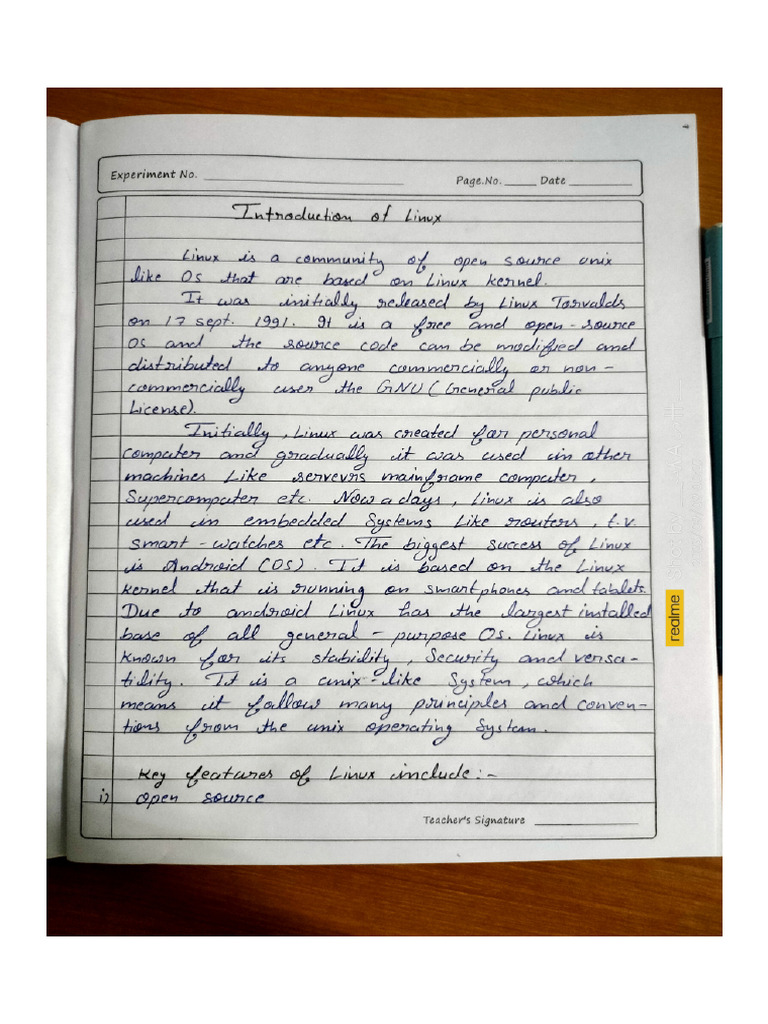 Experiment No.
Page.No. Date
Introduction of Linux
Linux is a community of open source unix
like OS that are based on Linux kernel.
It was initially released by Linux Torvalds
on 17 sept. 1991. It is a free and open-source
OS and the source code can be modified and
distributed to anyone commercially or non-
commercially user the GNU (General public
License).
Initially, Linux was created for personal
computer and gradually it was used in other
machines Like serveurs mainframe computer,
Supercomputer etc. Now a days, Linux is also
used in embedded Systems Like routers, t.v
smart-watches etc. The biggest success of Linux
is Android (OS). It is based on the Linux
kernel that is running on smartphones and tablets.
Due to android Linux has the largest installed
base of all general-purpose Os. Linux is
known for its stability, Security and versa-
tility. It is a unix-like System, which
means it follow many principles and conven-
tions from the unix operating System.
Key features of Linux include:-
i) open source
Teacher's Signature
realme